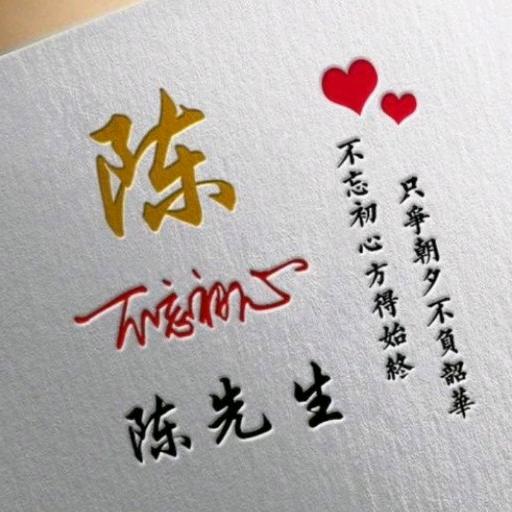 陈
不忘初心
陈先生
不忘初心方得始終
只爭朝夕不負韶華